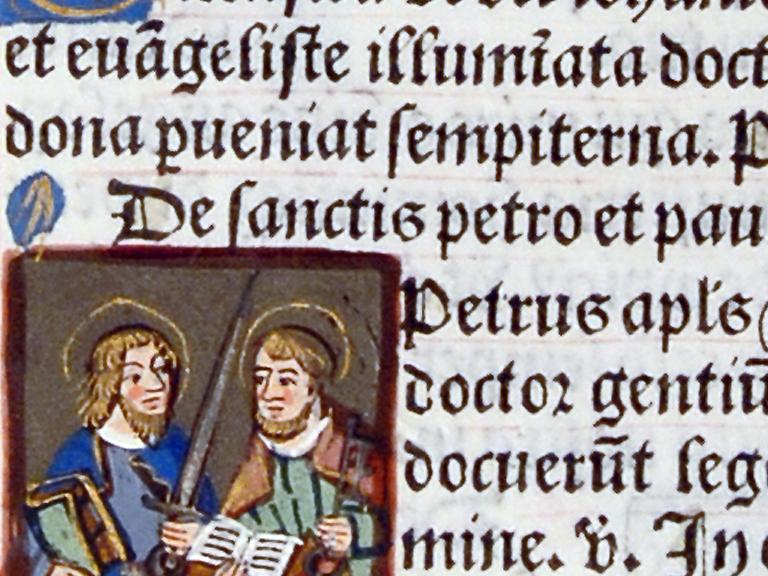 et euāgeliſte illumīata doct
dona ꝑueniat ſempiterna. P
De ſanctis petro et pau
Petrus apl's
doctoꝛ gentiū
docuerūt lege
mine. v. In